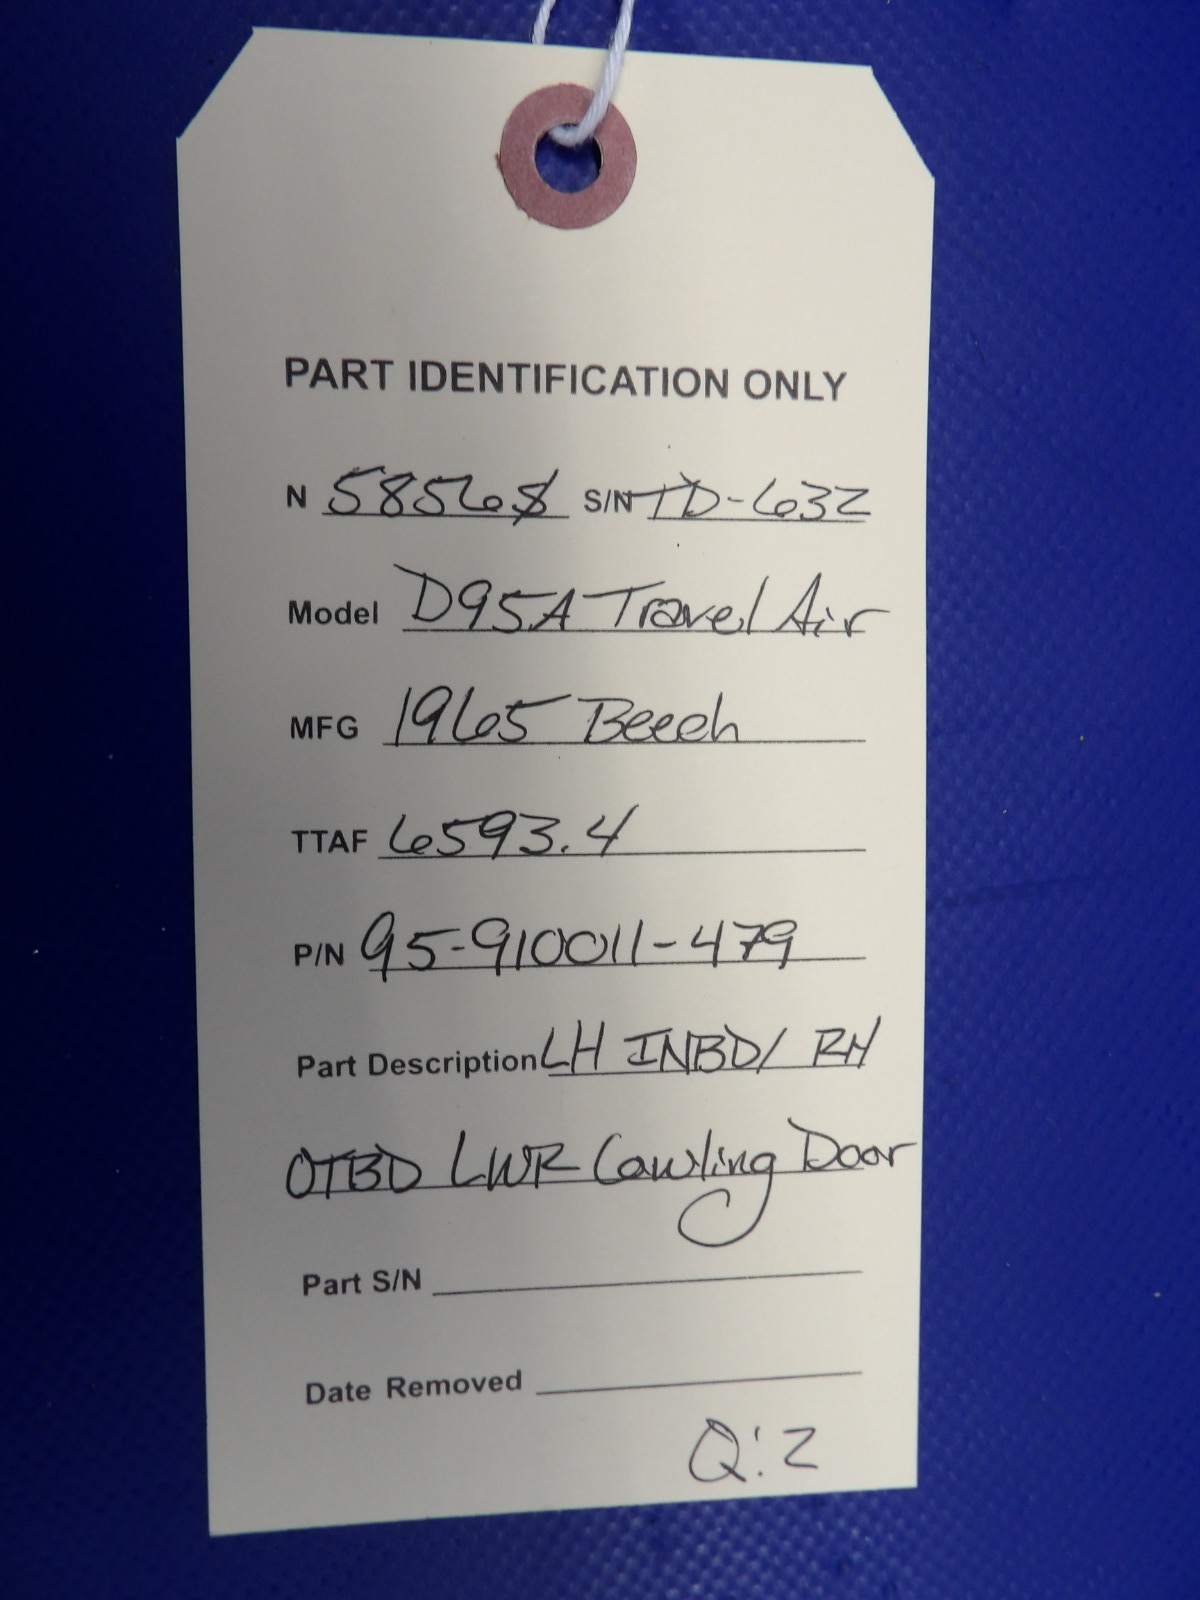 PART IDENTIFICATION ONLY
N 5856S S/N TD-632
Model D95A Travel Air
MFG 1965 Beech
TTAF 6593.4
P/N 95-910011-479
Part Description LH INBD/ RH
OTBD LWR Cowling Door
Part S/N
Date Removed
Q:2